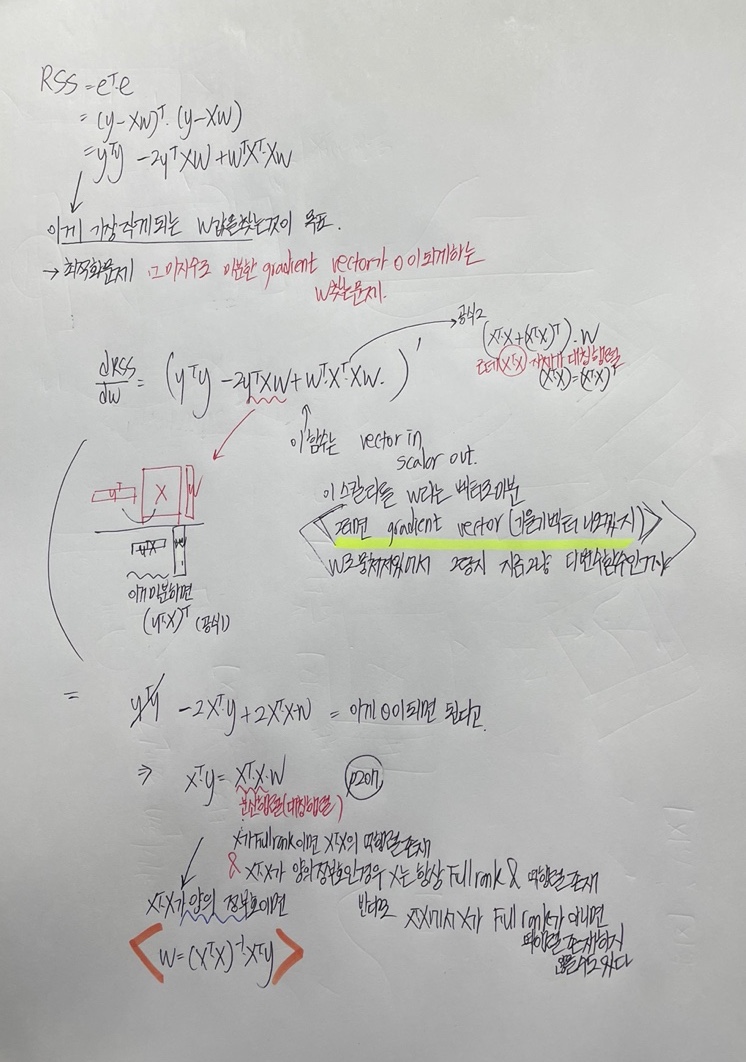 RSS = eᵀ·e
= (y-Xw)ᵀ·(y-Xw)
= yᵀy -2yᵀXw + wᵀXᵀ·Xw
이게 가장 작게 되는 w값을 찾는것이 목표.
→ 최적화문제 그마지우조 미분한 gradient vector가 0이되게하는
w찾는문제.
공식2
(Xᵀ·X+(XᵀX)ᵀ)·w
근데 (XᵀX) 자체가 대칭행렬
(XᵀX)=(XᵀX)ᵀ
dRSS/dw = (yᵀy -2yᵀXw + wᵀ·Xᵀ·Xw.)'
이 함수는 vector in
scalor out.
이 스칼라를 w라는 벡터로 미분
그러면 gradient vector (기울기벡터 나오겠지)
w로 뭉쳐져있어서 그렇지 지금 그냥 다변수함수인거지
yᵀ X w
yᵀX w
이거미분하면
(yᵀX)ᵀ (공식1)
= yᵀy -2Xᵀ·y + 2Xᵀ·X·w = 이게 0이되면 된다고.
⇒ Xᵀ·y = Xᵀ·X·w p207
분산행렬(대칭행렬)
X가 Full rank이면 XᵀX의 역행렬 존재
& XᵀX가 양의정부호인경우 X는 항상 Full rank & 역행렬 존재
XᵀX가 양의 정부호이면
반대로 XᵀX에서 X가 Full rank가 아니면
역행렬 존재하지
않을수도있다
w = (XᵀX)⁻¹·Xᵀy